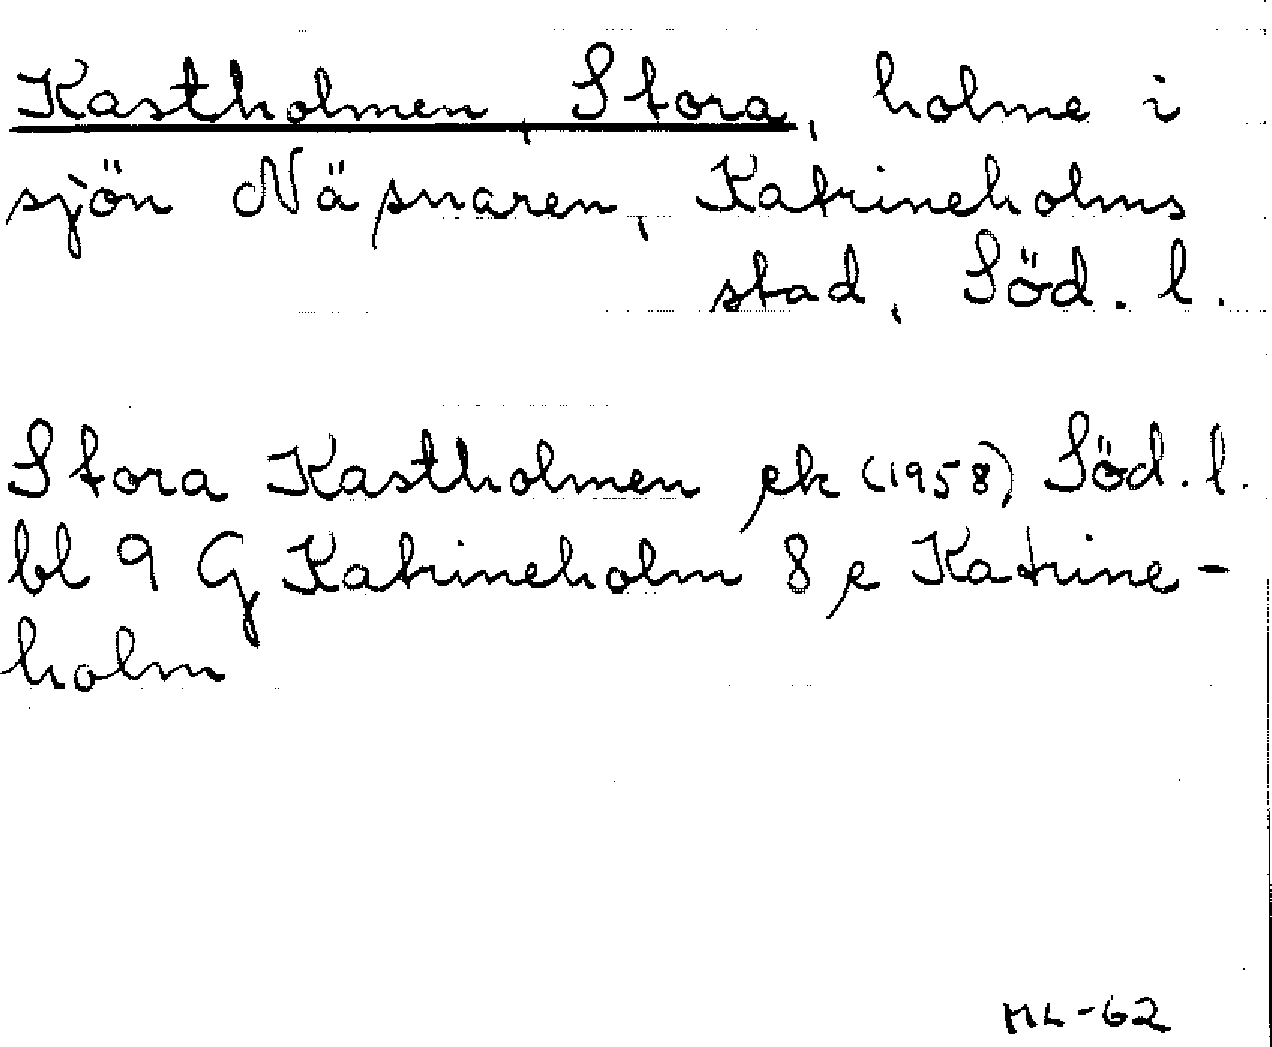 Kastholmen, Stora, holme i
sjön Näsnaren, Katrineholms
stad, Söd. l.
Stora Kastholmen ek (1958) Söd. l.
bl 9 G Katrineholm 8 e Katrine-
holm
ML-62